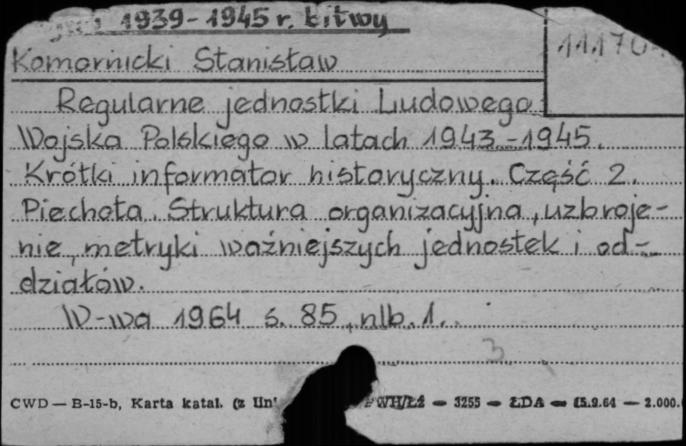 1939-1945 r. bitwy
11170
Komornicki Stanisław
Regularne jednostki Ludowego
Wojska Polskiego w latach 1943-1945.
Krótki informator historyczny. Część 2.
Piechota. Struktura organizacyjna, uzbroje-
nie, metryki ważniejszych jednostek i od-
działów.
W-wa 1964 s. 85, nlb. 1.
3.
CWD — B-15-b, Karta katal. (z lin' WH/ŁŹ — 3255 — ŁDA — 15.9.64 — 2.000.